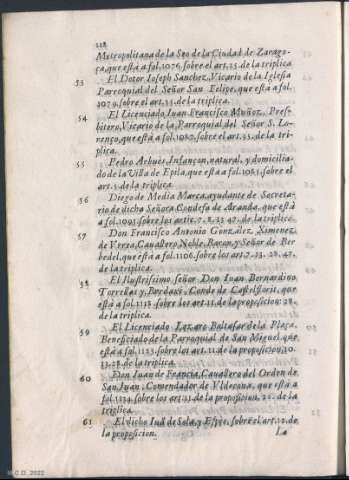 118
Metropolitana de la Seo de la Ciudad de Zarago-
ça, que està a fol. 1076. sobre el art. 35. de la triplica
53 El Dotor Ioseph Sanchez, Vicario de la Iglesia
Parroquial del Señor San Felipe, que està a fol.
1079. sobre el art. 35. de la triplica.
54 El Licenciado Iuan Francisco Muñoz, Pres-
bitero, Vicario de la Parroquial del Señor S. Lo-
renço, que està a fol. 1082. sobre el art. 35. de la tri-
plica.
55 Pedro Arbues, Infançon, natural, y domicilia-
do de la Villa de Epila, que està a fol. 1085. sobre el
art. 5. de la triplica.
56 Diego de Media Marca, ayudante de Secreta-
rio de dicha Señora Condesa de Aranda, que està
a fol. 1095. sobre los artic. 7. 8. 23. 47. de la triplica.
57 Don Francisco Antonio Gonzalez, Ximenez
de Vrrea, Cavallero, Noble, Baron, y Señor de Ber
bedel, que està a fol. 1106. sobre los art. 7. 23. 28. 47.
de la triplica.
58 El Ilustrissimo señor Don Iuan Bernardino
Torrellas y Bardaxi, Conde de Castelflorit, que
està a fol. 1118. sobre los art. 11. de la proposicion: 28.
de la triplica.
59 El Licenciado Lazaro Baltasar de la Plaça,
Beneficiado de la Parroquial de San Miguel, que
està a fol. 1123. sobre los art. 11. de la proposicion, 10.
23. 28. de la triplica.
60 Don Iuan de Francia, Cavallero del Orden de
San Iuan, Comendador de Vldecona, que està a
fol. 1124. sobre los art. 11. de la proposicion, 22. de la
triplica.
61 El dicho Iusl de Sala, y Espes, sobre el art. 12. de
la proposicion. La
B.C.D. 2022